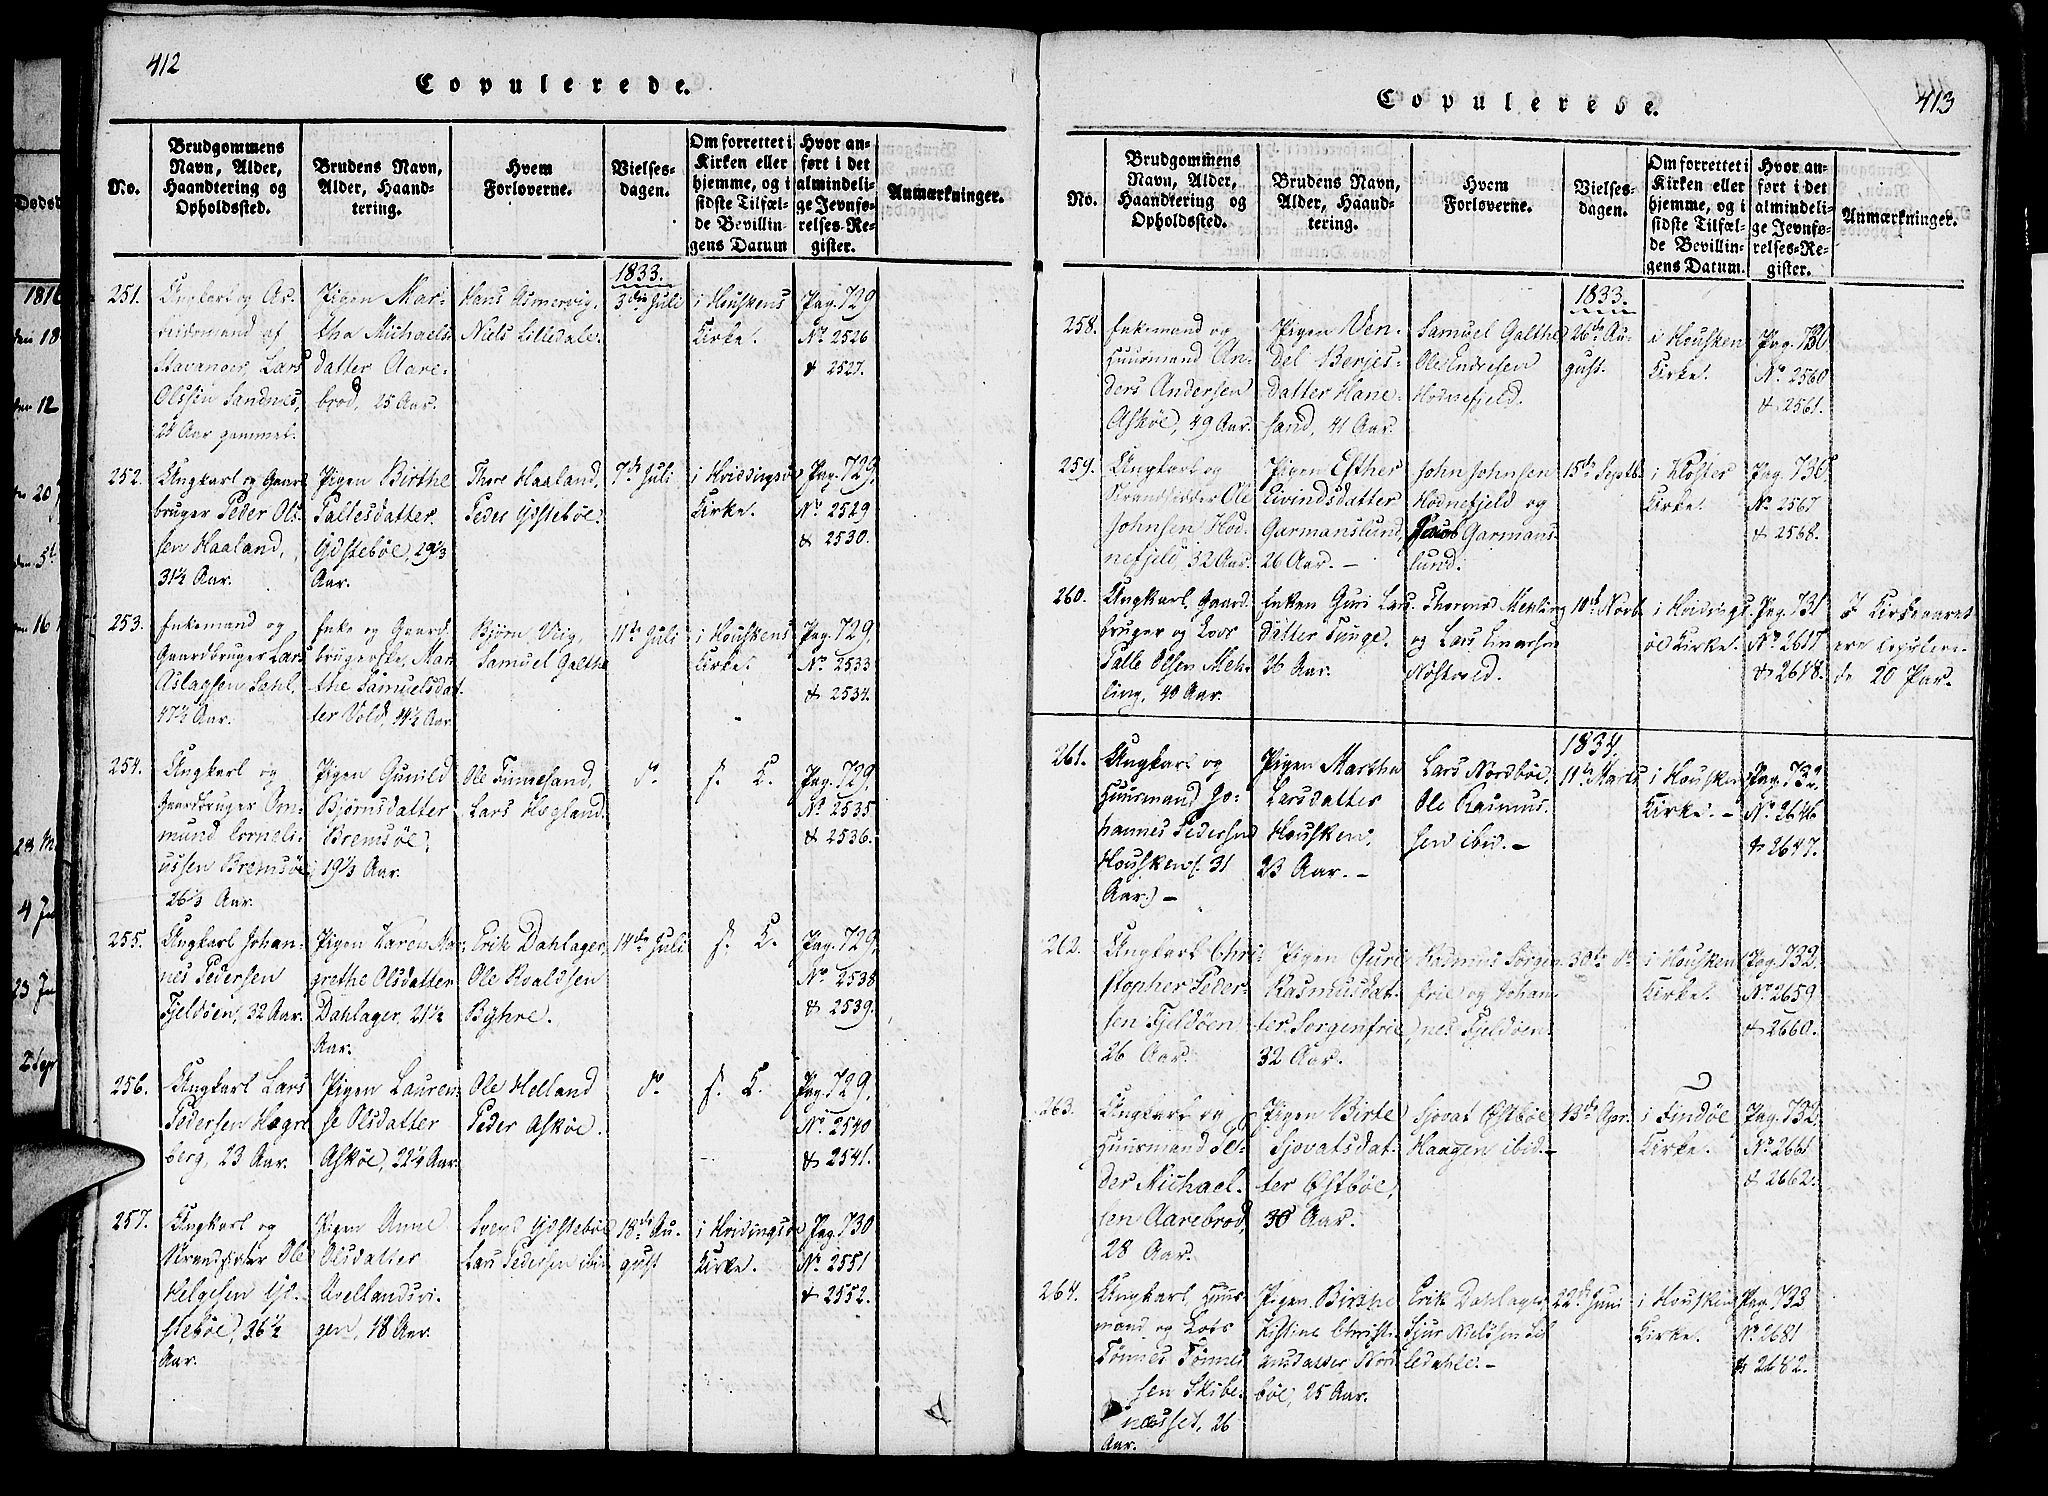 412
Copulerede.
No.
Brudgommens Navn, Alder, Haandtering og Opholdssted.
Brudens Navn, Alder, Haandtering.
Hvem Forloverne.
Vielsesdagen.
Om forrettet i Kirken eller hjemme, og i sidste Tilfælde Bevillingens Datum
Hvor anført i det almindelige Jevnførelses-Register.
Anmærkninger.
1833.
251.
Ungkarl og Ar-
beidsmand af
Stavanger, Lars
Olssen Sandnes,
25 Aar gammel.
Pigen Mar-
tha Michaels
datter Aare-
brod, 25 Aar.
Hans Asmervig,
Niels Lilledale.
3die Juli
i Houskens
Kirke.
Pag. 729
No. 2526
& 2527.
252.
Ungkarl og Gaard
bruger Peder Ols-
sen Haaland,
31½ Aar.
Pigen Birthe
Pallesdatter
Ydsteböe, 29⅓
Aar.
Thore Haaland,
Peder Ydsteböe.
7de Juli
i Hviddingsöe
Kirke.
Pag. 729.
No. 2529
& 2530.
253.
Enkemand og
Gaardbruger Lars
Aslagsen Sahl,
47½ Aar.
Enke og Gaard
brugerske, Mar-
the Samuelsdat-
ter Vold, 41½ Aar
Bjørn Viig,
Samuel Galthe
11te Juli
i Houskens
Kirke.
Pag. 729,
No. 2533
& 2534.
254.
Ungkarl og
Gaardbruger Om-
mund Corneli-
ussen Bremsöe
26⅓ Aar.
Pigen Gunild
Bjørnsdatter
Bremsöe,
19⅓ Aar.
Ole Finnesand,
Lars Hegland.
do
s. K.
Pag. 729.
No. 2535
& 2536.
255.
Ungkarl Johan-
nes Pedersen
Fjeldöen, 32 Aar.
Pigen Karen Mar-
grethe Olsdatter
Dahlager, 21½
Aar.
Erik Dahlager,
Ole Roaldsen
Byhre.
14de Juli
s. K.
Pag. 729,
No. 2538
& 2539.
256.
Ungkarl Lars
Pedersen Hagre
berg, 23 Aar.
Pigen Lauren-
se Olsdatter
Askøe, 32¼ Aar.
Ole Helland
Peder Askøe.
do
s. K.
Pag. 729,
No. 2540
& 2541.
257.
Ungkarl og
Strandsidder Ole
Helgesen Yd-
steböe, 36½
Aar.
Pigen Anne
Olsdatter
Avellandsvi-
gen, 18 Aar.
Svend Ydsteböe
Lars Pedersen ibid
18de Au-
gust
i Hvidingsöe
Kirke.
Pag. 730
No. 2551
& 2552.
413
Copulerede.
No.
Brudgommens Navn, Alder, Haandtering og Opholdssted.
Brudens Navn, Alder, Haandtering.
Hvem Forloverne.
Vielsesdagen.
Om forrettet i Kirken eller hjemme, og i sidste Tilfælde Bevillingens Datum.
Hvor anført i det almindelige Jevnførelses-Register.
Anmærkninger.
1833.
258.
Enkemand og
Huusmand An-
ders Andersen
Askøe, 49 Aar.
Pigen Ven-
del Borjes-
datter Hane-
sand, 41 Aar.
Samuel Galthe
Ole Endresen
Hodnefjeld.
26de Au-
gust.
i Housken
Kirke.
Pag. 730
No. 2560
& 2561.
259.
Ungkarl og
Strandsidder Ole
Johnsen Hod-
nefjeld, 32 Aar.
Pigen Esther
Eivindsdatter
Garmanslund,
26 Aar. –
John Johnsen
Hodnefjeld og
Garmans-
lund.
15de Septb.
i Kloster
Kirke.
Pag. 730.
No. 2567
& 2568.
260.
Ungkarl, Gaard-
bruger og Lods
Palle Olsen Meh-
ling, 40 Aar.
Enken Guri Lars
datter Tunge,
26 Aar.
Thormod Mehling
og Lars Einarsen
Nostvold.
10de Novb.
i Hvidings
öe Kirke.
Pag. 731
No. 2617
& 2618.
I Kirkeaaret
ere Copulere-
de 20 Par.
1834.
261.
Ungkarl og
Huusmand Jo-
hannes Pedersen
Housken (: 31
Aar:) –
Pigen Martha
Larsdatter
Housken,
23 Aar. –
Lars Nordböe,
Ole Rasmus-
sen ibid. –
11te Marts
i Housken
Kirke. –
Pag. 732.
No. 2646
& 2647.
262.
Ungkarl Chri-
stopher Peder-
sen Fjeldöen
26 Aar.
Pigen Guri
Rasmusdat-
ter Sorgenfrie,
32 Aar.
Rasmus Sorgen-
frie og Johan-
nes Fjeldöen
30te do
i Housken
Kirke.
Pag. 732.
No. 2659
& 2660.
263.
Ungkarl og
Huusmand Pe-
der Michael-
sen Aarebrod,
28 Aar.
Pigen Birte
Sjovatsdat-
ter Østböe,
30 Aar.
Sjovat Østböe
Haagen ibid. –
13de Apr.
i Findöe
Kirke.
Pag. 732.
No. 2661
& 2662.
264.
Ungkarl, Huus
mand og Lods
Tønnes Tønnes
sen Skibe-
næsset, 26
Aar.
Pigen Birthe
Kistine Christi-
ansdatter Nord-
böe, 25 Aar.
Erik Dahlager,
Sjur Nielssen Lil-
ledahle. –
22de Juni
i Housken
Kirke.
Pag. 733
No. 2681
& 2682.